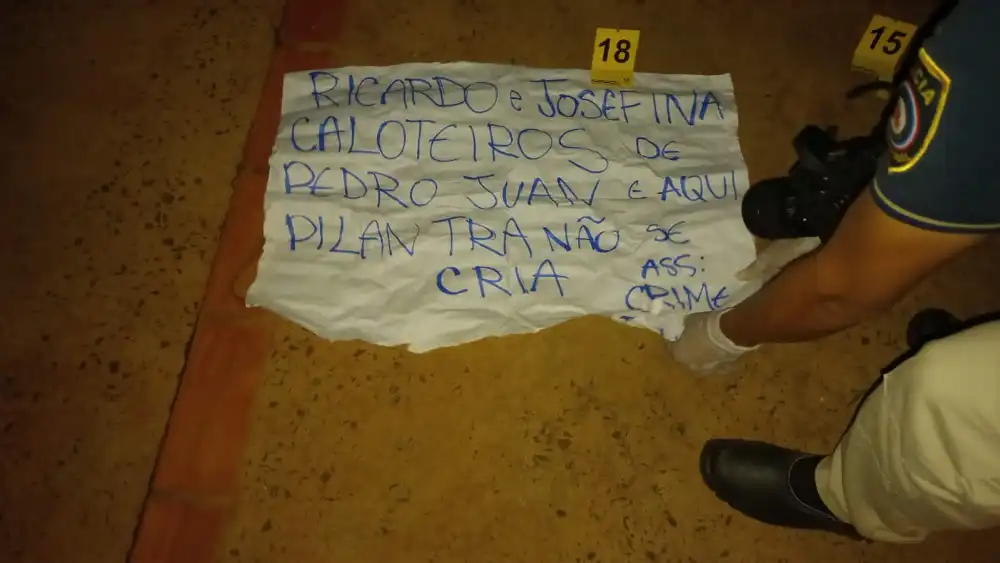 18
15
RICARDO e JOSEFINA
CALOTEIROS DE
PEDRO JUAN E AQUI
PILANTRA NÃO SE
CRIA
ASS:
CRIME
CIA